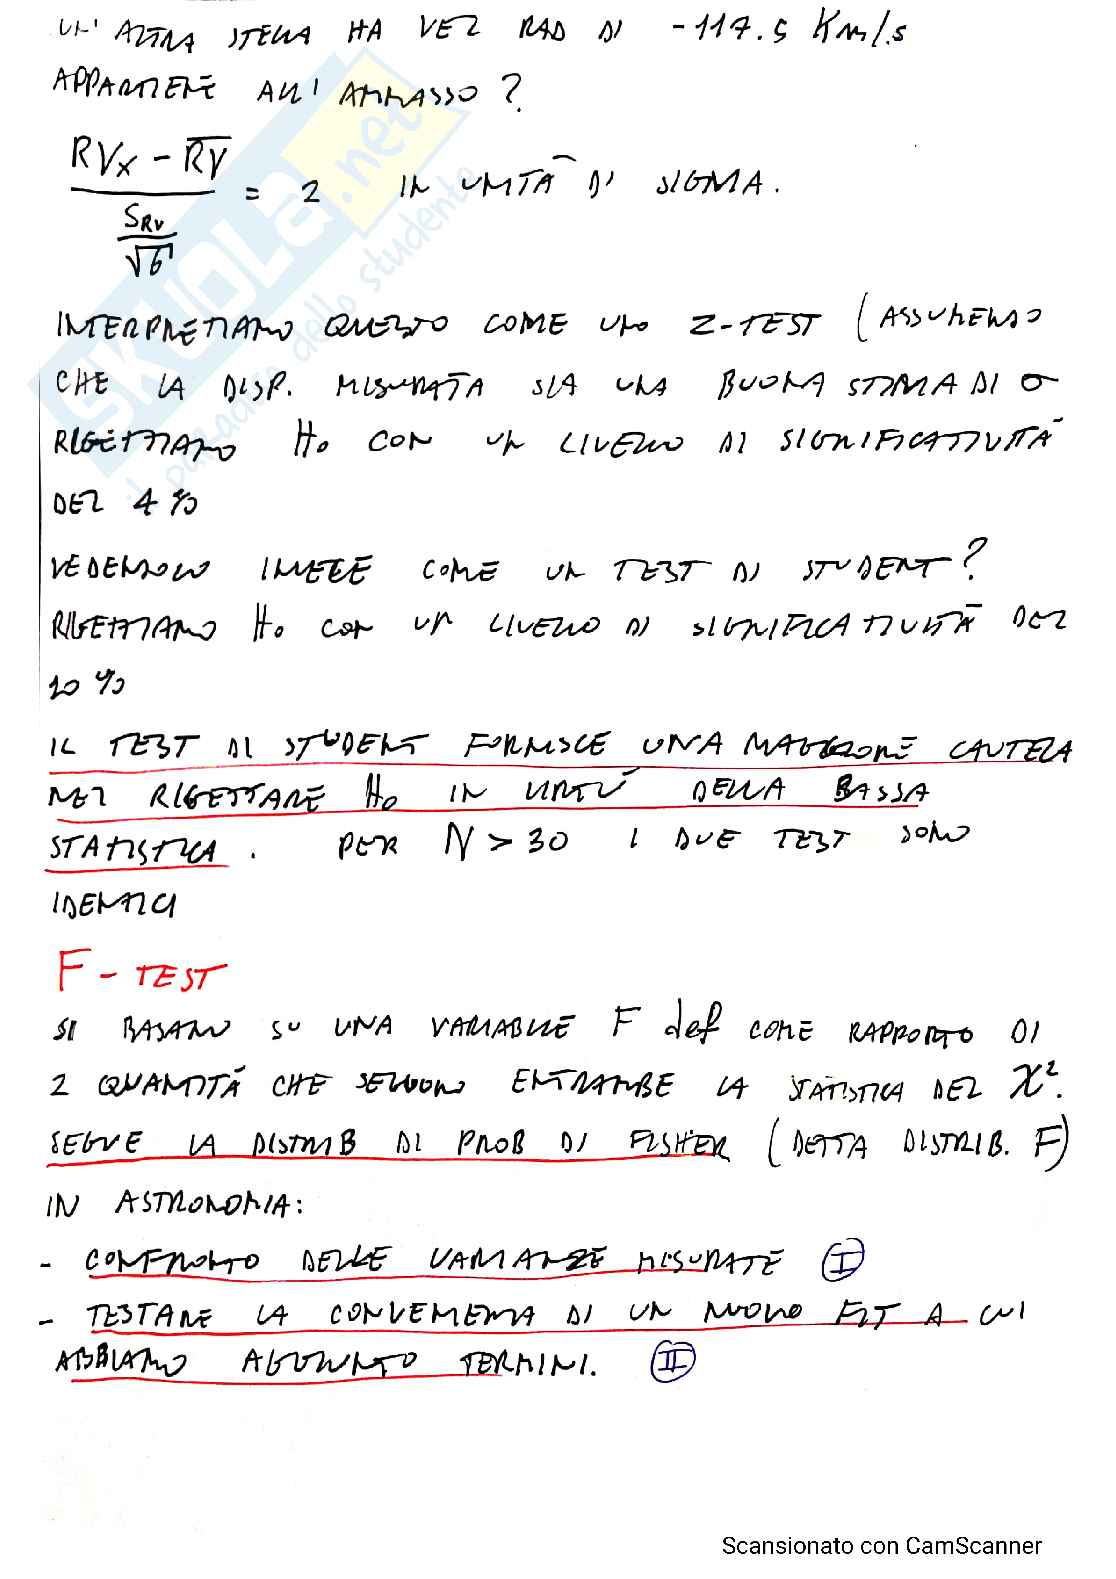 UN' ALTRA STELLA HA VEL RAD DI -117.5 Km/s
APPARTIENE ALL' AMMASSO?
RVx - RV
= 2 IN UNITÀ DI SIGMA.
SRV
√6
INTERPRETIAMO QUESTO COME UNO Z-TEST (ASSUMENDO
CHE LA DISP. MISURATA SIA UNA BUONA STIMA DI σ
RIGETTIAMO H₀ CON UN LIVELLO DI SIGNIFICATIVITÀ
DEL 4 %
VEDENDOLO INVECE COME UN TEST DI STUDENT?
RIGETTIAMO H₀ CON UN LIVELLO DI SIGNIFICATIVITÀ DEL
10 %
IL TEST DI STUDENT FORNISCE UNA MAGGIORE CAUTELA
NEL RIGETTARE H₀ IN VIRTÙ DELLA BASSA
STATISTICA. PER N > 30 I DUE TEST SONO
IDENTICI
F - TEST
SI BASANO SU UNA VARIABILE F def COME RAPPORTO DI
2 QUANTITÀ CHE SEGUONO ENTRAMBE LA STATISTICA DEL χ².
SEGUE LA DISTRIB DI PROB DI FISHER (DETTA DISTRIB. F)
IN ASTRONOMIA:
- CONFRONTO DELLE VARIANZE MISURATE I
- TESTARE LA CONVENIENZA DI UN NUOVO FIT A CUI
ABBIAMO AGGIUNTO TERMINI. II
SKUOLA.net
il paradiso dello studente
Scansionato con CamScanner